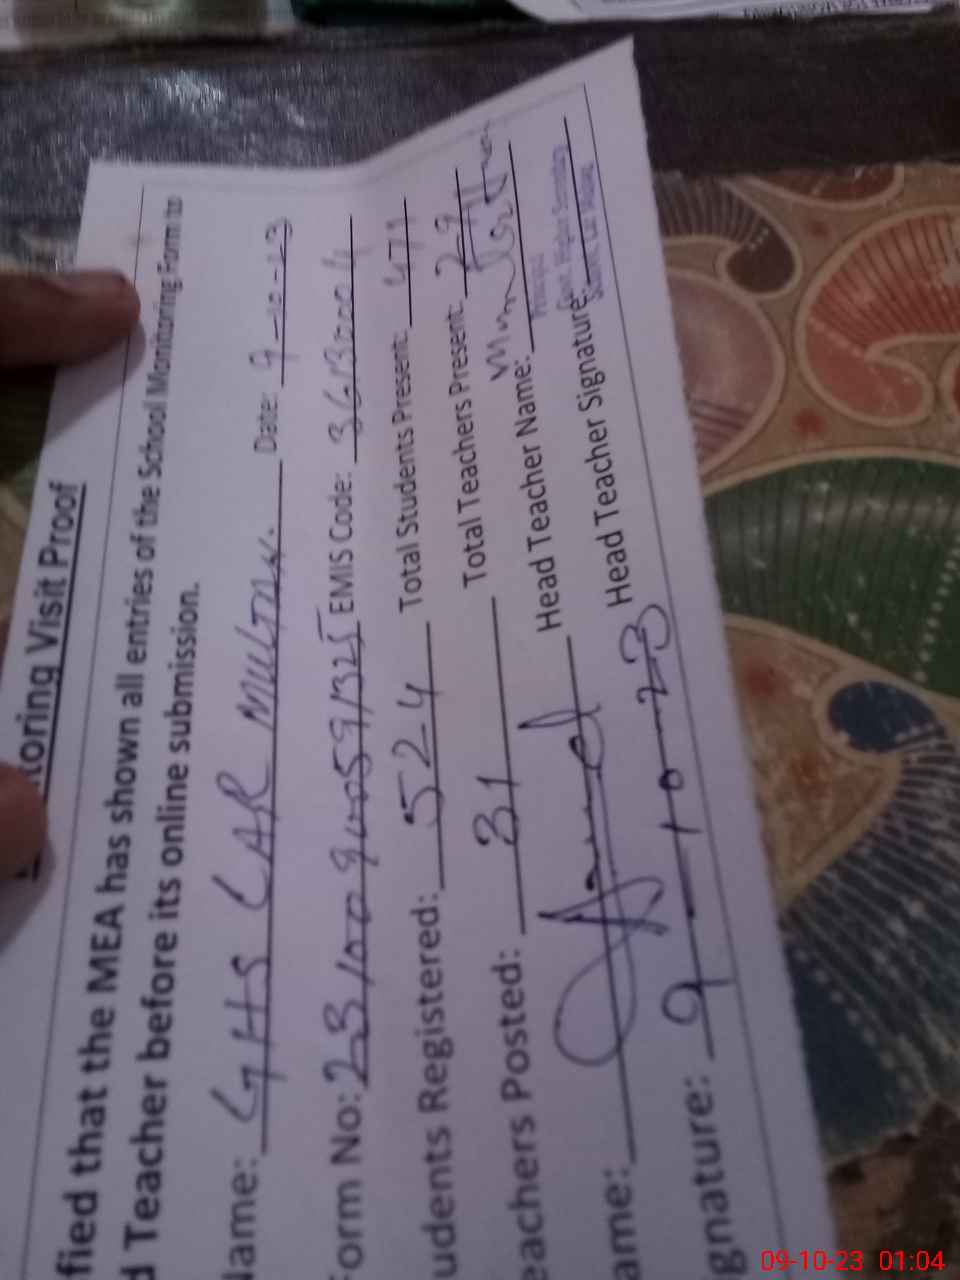 toring Visit Proof
fied that the MEA has shown all entries of the School Monitoring Form to
d Teacher before its online submission.
Name: GHS LAR MULTAN. Date: 9-10-23
Form No: EMIS Code: 36130004
udents Registered: 524 Total Students Present: 471
eachers Posted: 31 Total Teachers Present: 29
ame: Head Teacher Name:
gnature: 9-10-23 Head Teacher Signature:
Principal
Govt. Higher Secondary
School Lar Multan
09-10-23 01:04